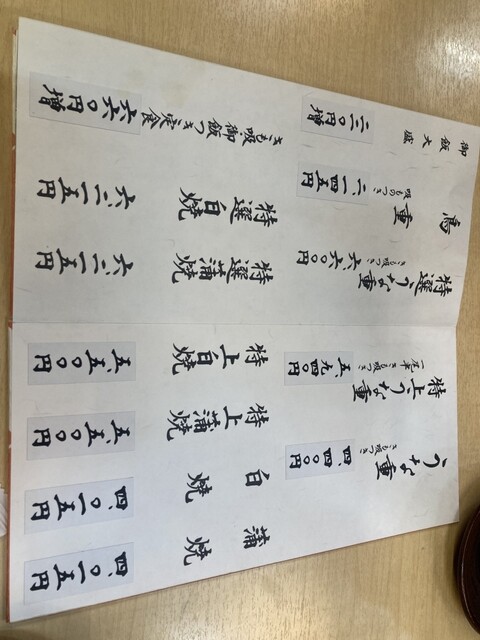 うな重
きも吸つき
四、四〇〇円
特上うな重
一尾半 きも吸つき
五、九四〇円
特選うな重
きも吸つき
六、六〇〇円
鳥重
吸ものつき
二、一四五円
御飯大盛
二二〇円増
蒲焼
四、〇一五円
白焼
四、〇一五円
特上蒲焼
五、五〇〇円
特上白焼
五、五〇〇円
特選蒲焼
六、二一五円
特選白焼
六、二一五円
きも吸御飯つき定食
六六〇円増